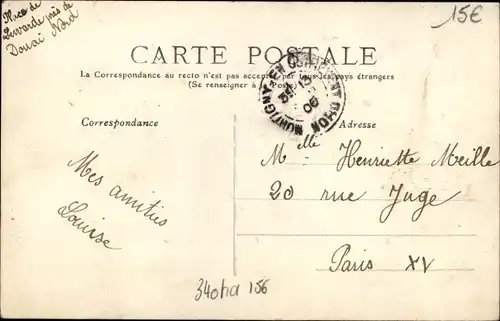 Place de
Lewarde près de
Douai Nord
15€
CARTE POSTALE
La Correspondance au recto n'est pas acceptée par tous les pays étrangers
(Se renseigner à la Poste)
MONTIGNY-EN
13
06
Correspondance
Adresse
Mes amitiés
Louise
Melle Henriette Meille
20 rue Juge
Paris XV
340ha 156